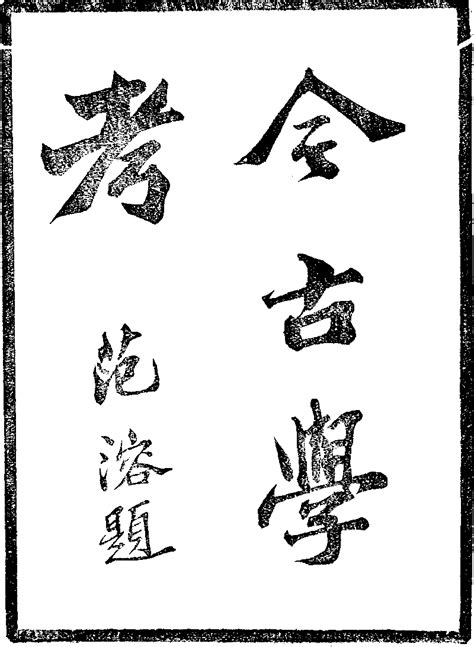 今古學
考
范溶題